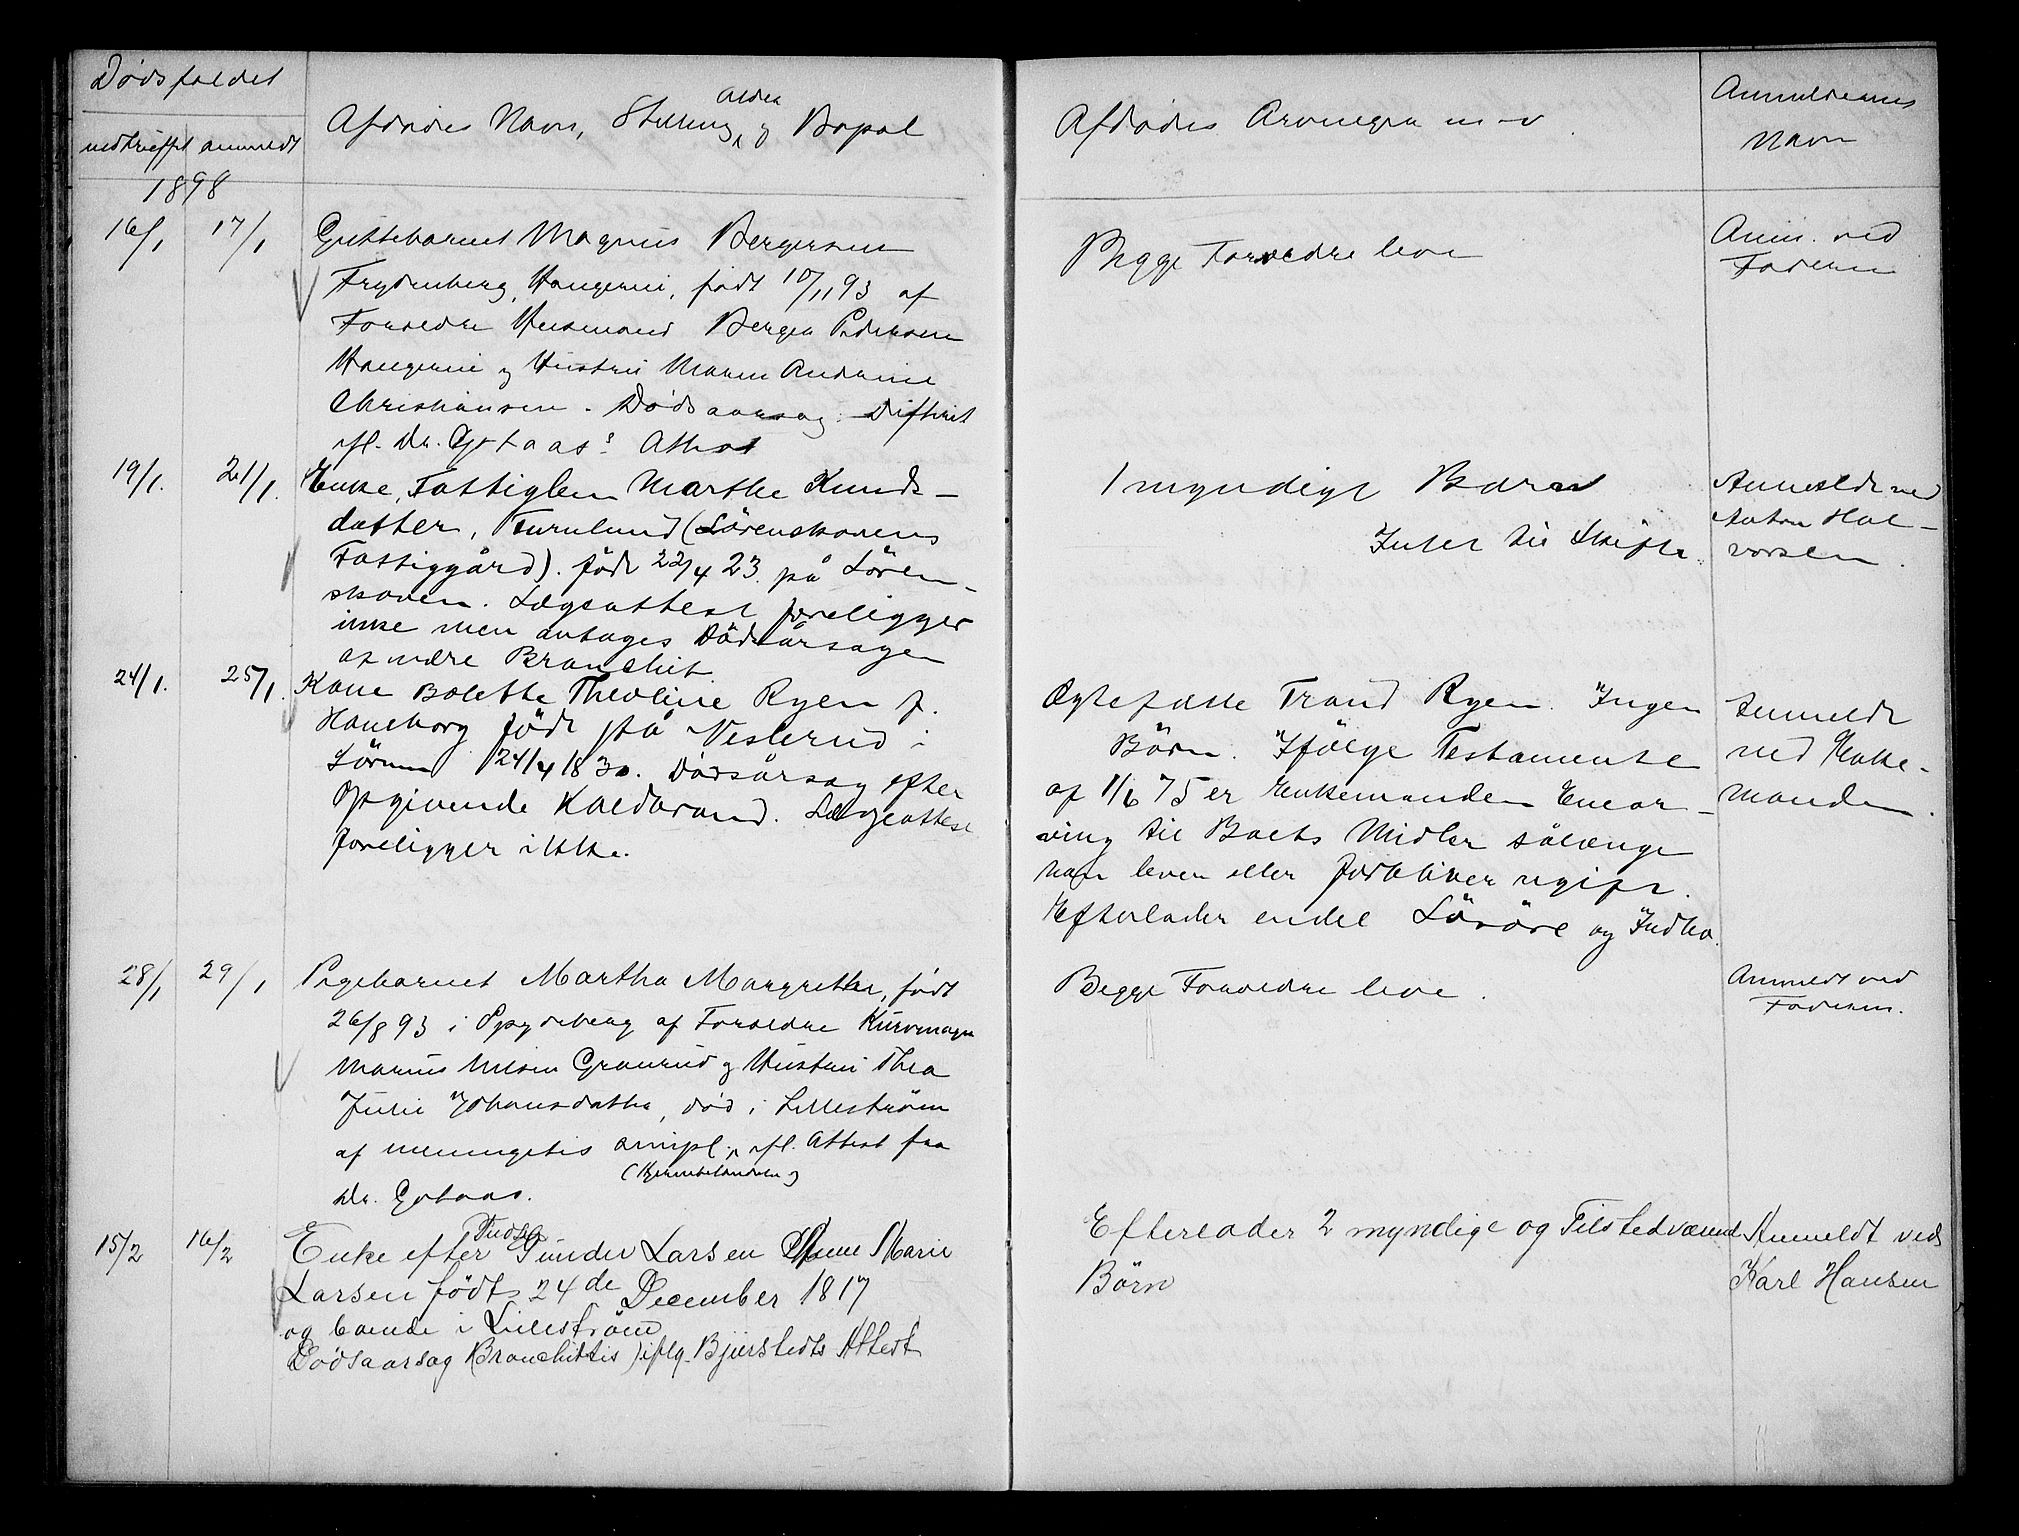 Dødsfaldet
indtruffet anmeldt
Afdødes Navn, Stilling, Alder og Bopæl
Afdødes Arvinger m-v.
Anmelderens
Navn
1898
16/1 17/1 Guttebarnet Magnus Bergersen
Frydenberg, Haugerni, født 10/11 93 af
Forældre Husmand Berger Pedersen
Haugerni og Hustru Maren Andrine
Christiansen. Dødsaarsag: Difterit
ifl. Dr. Gotaas's Attest
Begge Forældre leve
Anm. ved
Faderen
19/1. 21/1. Enke, Fattiglem Marthe Knuds-
datter, Furulund (Lörenskovens
Fattiggård). födt 22/4 23. på Lören-
skoven. Lægeattest foreligger
ikke men antages Dödsårsagen
at være Bronchit.
1 myndigt Barn
Intet til Skifte.
Anmeldt ved
Anton Hal-
vorsen.
24/1. 25/1. Kone Bolette Theoline Ryen f.
Haneborg født på Veslerud i
Sörum 24/4 1830. Dödsårsag efter
Opgivende Koldbrand. Lægeattest
foreligger ikke.
Ægtefælle Trond Ryen. Ingen
Börn. Ifölge Testamente
af 1/6 75 er Enkemanden Enear-
ving til Boets Midler sålænge
han lever eller forbliver ugift.
Efterlader endel Lösöre og Indbo.
Anmeldt
ved Enke-
manden.
28/1 29/1 Pigebarnet Martha Margrethe, født
26/8 93 i Spydeberg af Forældre Kurvmager
Marius Nilsen Granrud og Hustru Thea
Julie Johansdatter, død i Lilleström
af meningitis simpl., ifl. Attest fra
(Hjernebetændelse)
Dr. Gotaas.
Begge Forældre leve.
Anmeldt ved
Faderen.
15/2 16/2 Enke efter Gunder Larsen Anne Marie
Larsen født 24de December 1817
og boende i Lilleström
Dødsaarsag (Bronchittis) ifølg. Bjerstedts Attest
Efterlader 2 myndige og Tilstedværend
Börn
Anmeldt ved
Karl Hansen